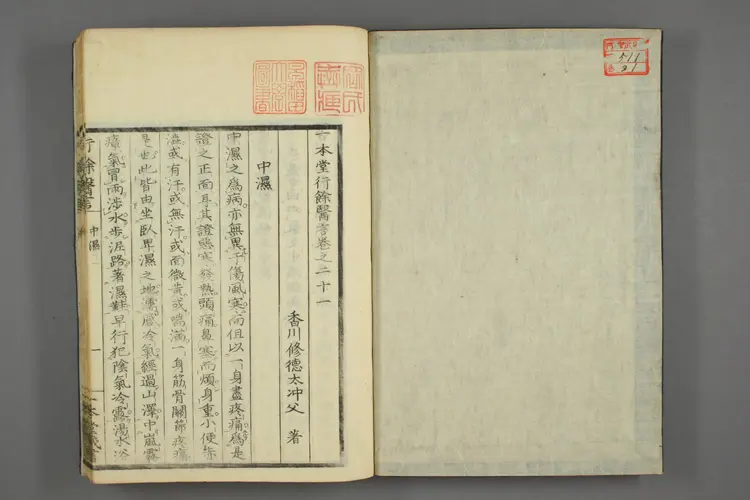 一本堂行餘醫言卷之二十一
香川修德太冲父 著
中濕
中濕之爲病亦無異于傷風寒而但以一身盡疼痛爲是
證之正面耳其證惡寒發熱頭痛鼻塞而煩身重小便
濇或有汗或無汗或面微黃或喘滿一身筋骨關節疼痛
是也此皆由坐臥卑濕之地霧露冷氣經過山澤中嵐霧
瘴氣冒雨涉水步泥路著濕鞋早行犯陰氣冷露湯水浴
行餘醫言
中濕
一
511
21